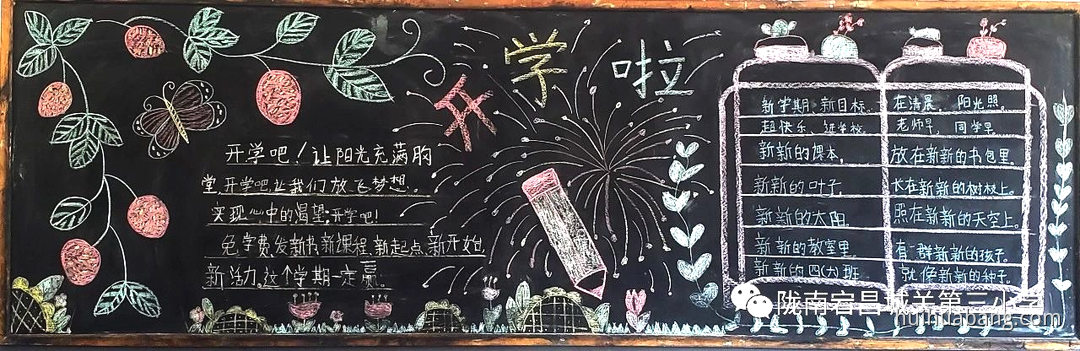 开学啦
开学吧！让阳光充满胸
堂，开学吧，让我们放飞梦想。
实现心中的渴望，开学吧！
免学费，发新书，新课程，新起点，新开始
新活力，这个学期一定赢。
新学期，新目标，
超快乐，进学校。
新新的课本，
新新的叶子，
新新的太阳，
新新的教室里，
新新的四(六)班，
在清晨，阳光照，
老师早，同学早。
放在新新的书包里。
长在新新的树枝上。
照在新新的天空上。
有一群新新的孩子。
就像新新的种子。
陇南宕昌城关第三小学